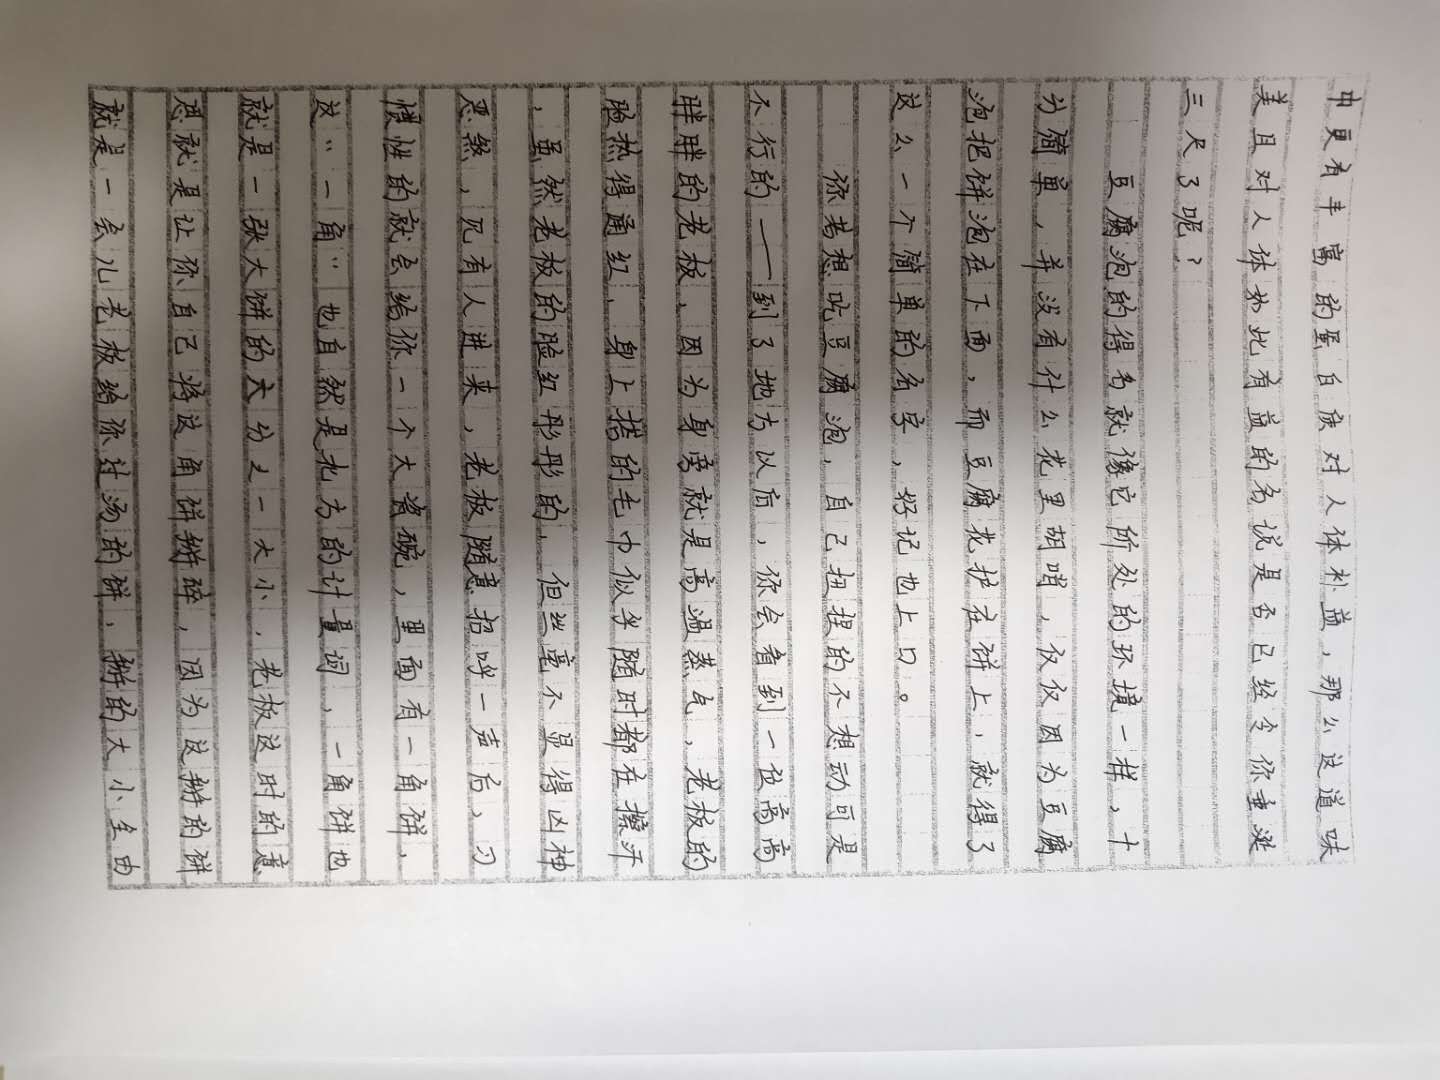 中更有丰富的蛋白质对人体补益，那么这道味
美且对人体如此有益的名说是否已经令你垂涎
三尺了呢？
豆腐泡的得名就像它所处的环境一样，十
分简单，并没有什么花里胡哨，仅仅因为豆腐
泡把饼泡在下面，而豆腐花护在饼上，就得了
这么一个简单的名字，好记也上口。
你若想吃豆腐泡，自己扭捏的不想动可是
不行的——到了地方以后，你会看到一位高高
胖胖的老板，因为身旁就是高温蒸气，老板的
脸热得通红，身上搭的毛巾似乎随时都在擦汗
，虽然老板的脸红彤彤的，但丝毫不显得凶神
恶煞，见有人进来，老板随意招呼一声后，习
惯性的就会给你一个大瓷碗，里面有一角饼，
这“一角”也自然是北方的计量词，一角饼也
就是一张大饼的六分之一大小，老板这时的意
思就是让你自己将这角饼掰碎，因为这掰的饼
就是一会儿老板给你过汤的饼，掰的大小全由